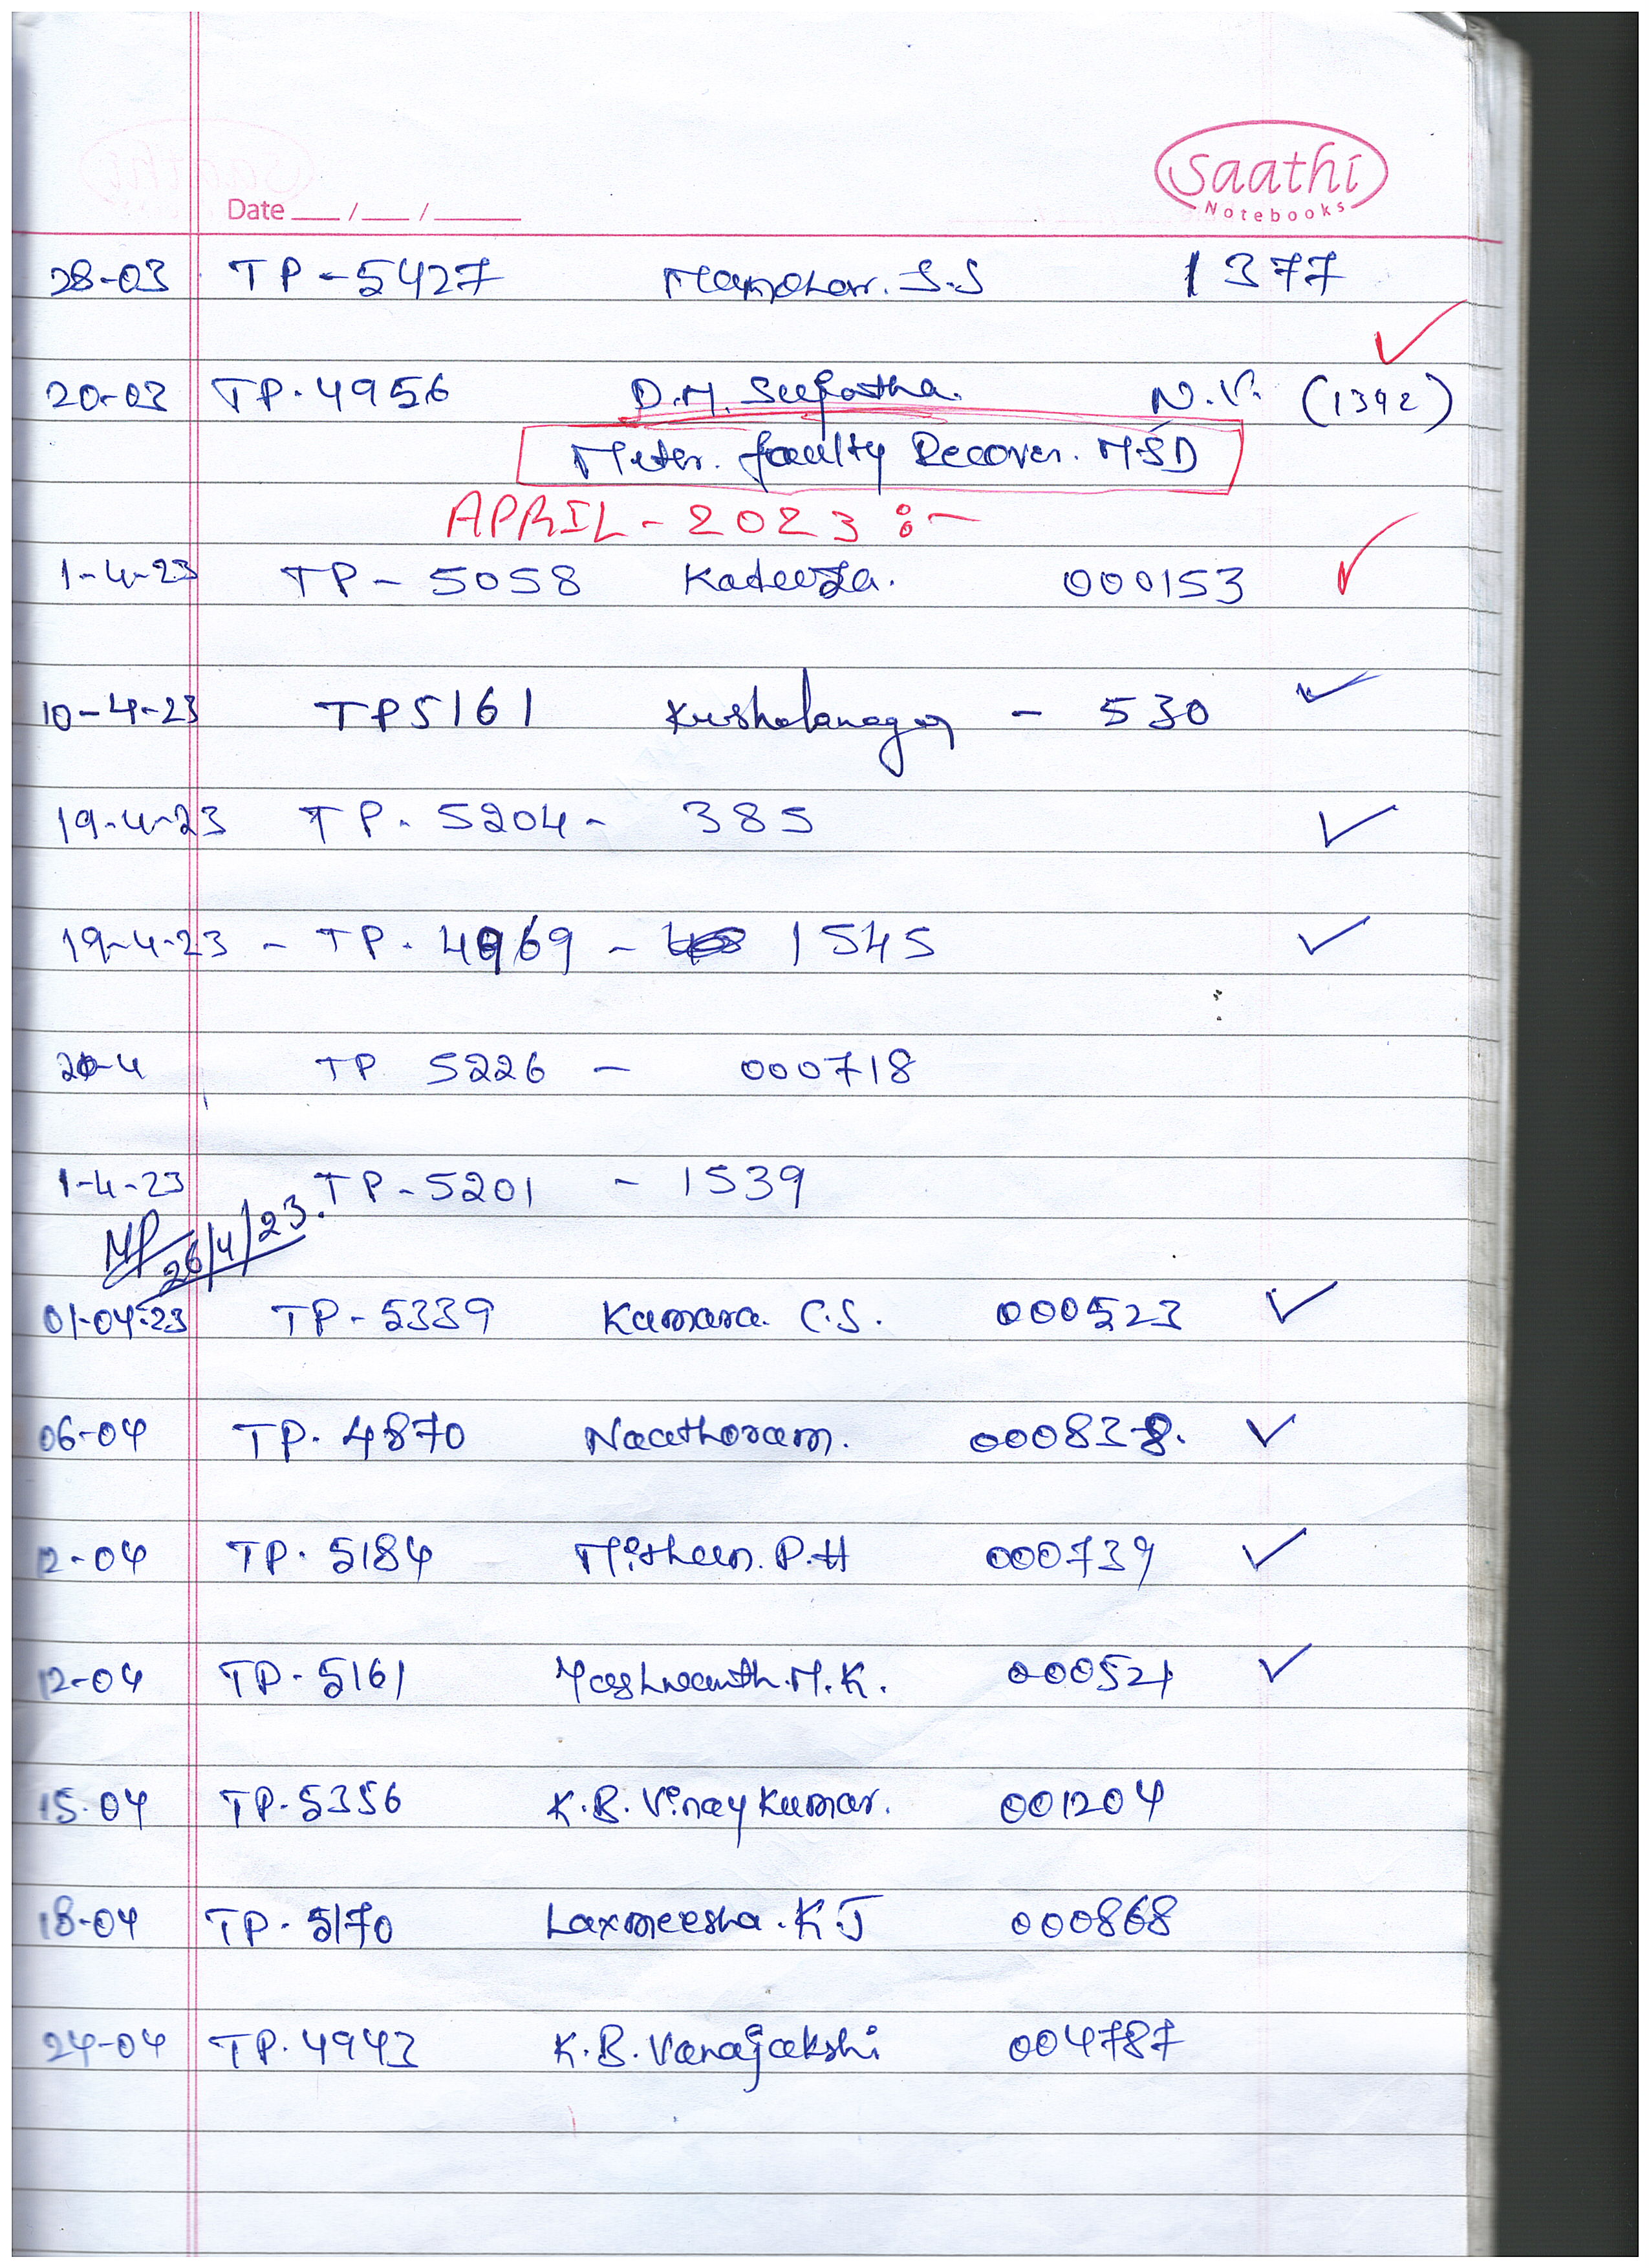 Saathi
Notebooks
Date ___ / ___ / _____
28-03 TP-5427 Manohar. S.S 1377
20-03 TP. 4956 D.M. N.V. (1392)
Meter. faulty Recover. MSD
APRIL - 2023 :-
1-4-23 TP - 5058 Kadeeja. 000153
10-4-23 TP5161 Kushalanagar - 530
19-4-23 TP. 5204 - 385
19-4-23 - TP. 4969 - 1545
20-4 TP 5226 - 000718
1-4-23 TP-5201 - 1539
26/4/23.
01-04-23 TP-5339 Kamara. C.S. 000523
06-04 TP. 4870 Naathoram. 000838.
12-04 TP. 5184 Mitheen. P.H 000739
12-04 TP. 5161 Yashwanth. M.K. 000521
15-04 TP-5356 K.B. Vinay Kumar. 001204
18-04 TP. 5170 Laxmeesha. K J 000868
24-04 TP. 4943 K.B. Vanajakshi 004787